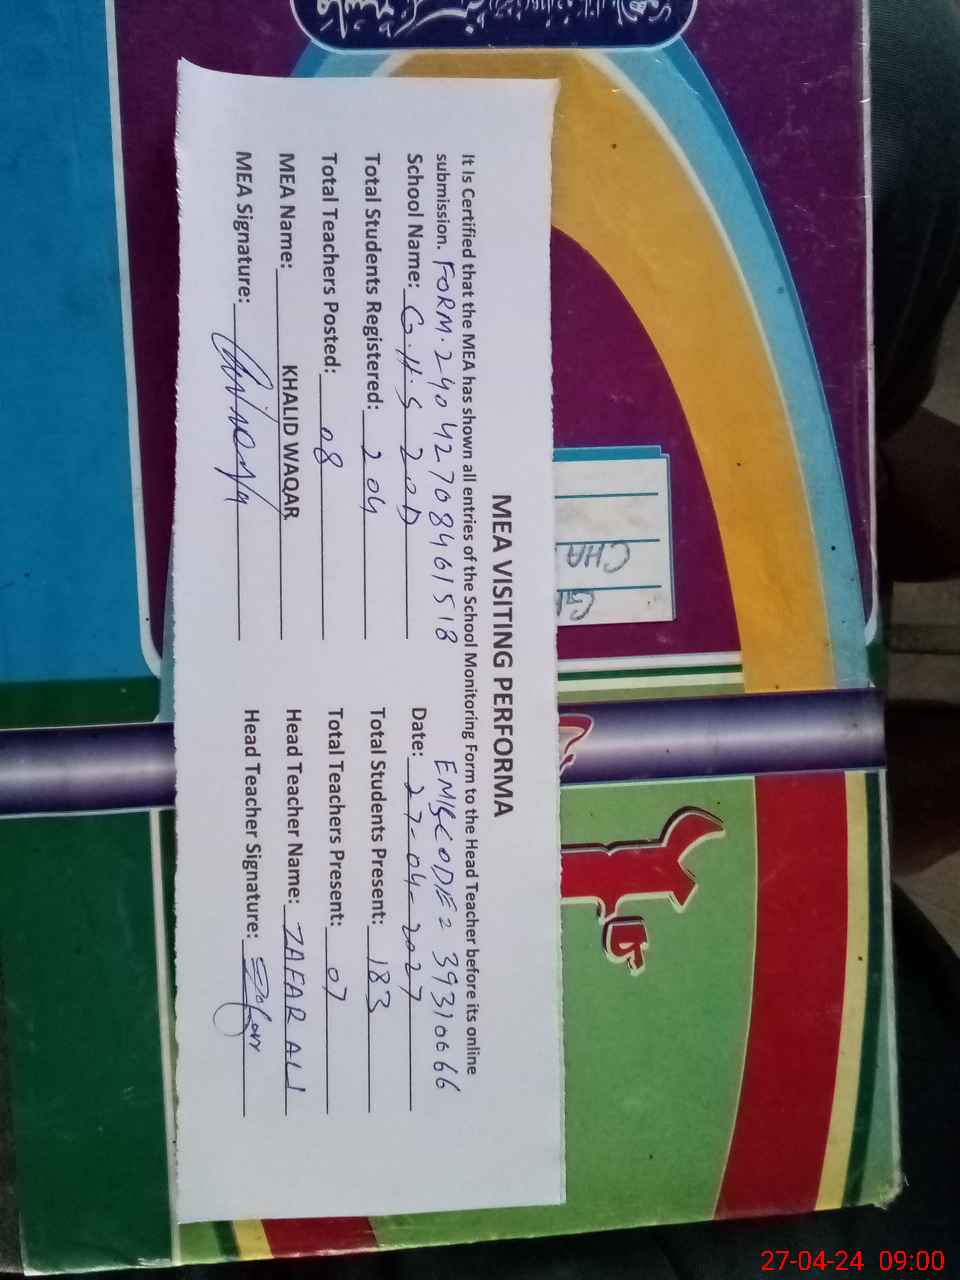 MEA VISITING PERFORMA
It Is Certified that the MEA has shown all entries of the School Monitoring Form to the Head Teacher before its online
submission. FORM. 24042708461518 EMISCODE = 39310666
School Name: G.H.S Date: 27-04-2027
Total Students Registered: 204 Total Students Present: 183
Total Teachers Posted: 08 Total Teachers Present: 07
MEA Name: KHALID WAQAR Head Teacher Name: ZAFAR ALI
MEA Signature: Head Teacher Signature:
CHA
27-04-24 09:00